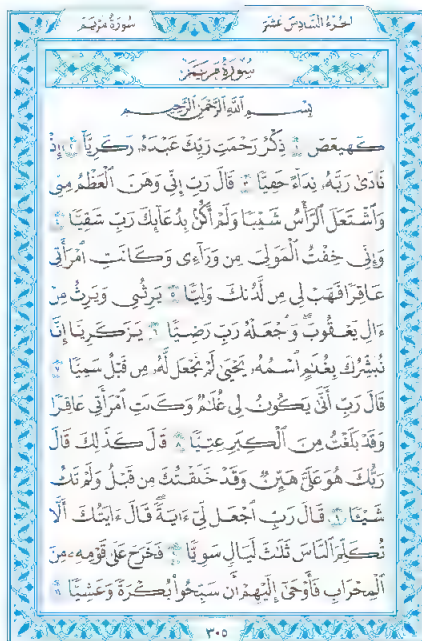 الجزء السادس عشر
سورة مريم
سورة مريم
بسم الله الرحمن الرحيم
كٓهيعٓصٓ ١ ذِكْرُ رَحْمَتِ رَبِّكَ عَبْدَهُۥ زَكَرِيَّآ ٢ إِذْ
نَادَىٰ رَبَّهُۥ نِدَآءً خَفِيًّا ٣ قَالَ رَبِّ إِنِّى وَهَنَ ٱلْعَظْمُ مِنِّى
وَٱشْتَعَلَ ٱلرَّأْسُ شَيْبًا وَلَمْ أَكُنۢ بِدُعَآئِكَ رَبِّ شَقِيًّا ٤
وَإِنِّى خِفْتُ ٱلْمَوَٰلِىَ مِن وَرَآءِى وَكَانَتِ ٱمْرَأَتِى
عَاقِرًا فَهَبْ لِى مِن لَّدُنكَ وَلِيًّا ٥ يَرِثُنِى وَيَرِثُ مِنْ
ءَالِ يَعْقُوبَ ۖ وَٱجْعَلْهُ رَبِّ رَضِيًّا ٦ يَٰزَكَرِيَّآ إِنَّا
نُبَشِّرُكَ بِغُلَٰمٍ ٱسْمُهُۥ يَحْيَىٰ لَمْ نَجْعَل لَّهُۥ مِن قَبْلُ سَمِيًّا ٧
قَالَ رَبِّ أَنَّىٰ يَكُونُ لِى غُلَٰمٌ وَكَانَتِ ٱمْرَأَتِى عَاقِرًا
وَقَدْ بَلَغْتُ مِنَ ٱلْكِبَرِ عِتِيًّا ٨ قَالَ كَذَٰلِكَ قَالَ
رَبُّكَ هُوَ عَلَىَّ هَيِّنٌ وَقَدْ خَلَقْتُكَ مِن قَبْلُ وَلَمْ تَكُ
شَيْـًٔا ٩ قَالَ رَبِّ ٱجْعَل لِّىٓ ءَايَةً ۚ قَالَ ءَايَتُكَ أَلَّا
تُكَلِّمَ ٱلنَّاسَ ثَلَٰثَ لَيَالٍ سَوِيًّا ١٠ فَخَرَجَ عَلَىٰ قَوْمِهِۦ مِنَ
ٱلْمِحْرَابِ فَأَوْحَىٰٓ إِلَيْهِمْ أَن سَبِّحُوا۟ بُكْرَةً وَعَشِيًّا ١١
٣٠٥